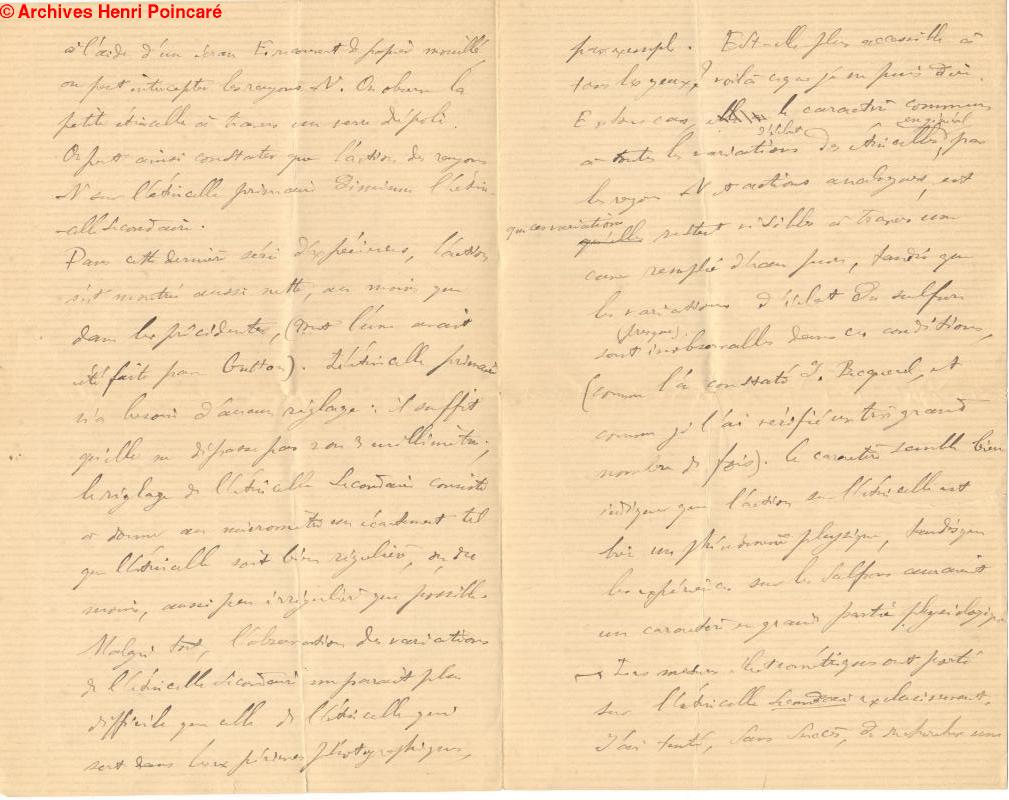 © Archives Henri Poincaré
à l'aide d'un écran E rarement de papier mouillé
on peut intercepter les rayons N. On observe la
petite étincelle à travers un verre dépoli.
On peut ainsi constater que l'action des rayons
N sur l'étincelle primaire diminue l'étin-
-celle secondaire.
Dans cette dernière série d'expériences, l'action
s'est montrée aussi nette, au moins que
dans les précédentes, (dont l'une avait
été faite par Gutton). L'étincelle primaire
n'a besoin d'aucun réglage : il suffit
qu'elle ne dépasse pas 2 ou 3 millimètres.
Le réglage de l'étincelle secondaire consiste
à donner au micromètre un écartement tel
que l'étincelle soit bien régulière, ou du
moins, aussi peu irrégulière que possible.
Malgré tout, l'observation des variations
de l'étincelle secondaire me paraît plus
difficile que celle de l'étincelle qui
sert dans les expériences photographiques,
par exemple. Est-elle plus accessible à
tous les yeux? voilà ce que je ne puis dire.
En tous cas, le caractère commun
à toutes les variations d'éclat des étincelles, en général par
les rayons N et actions analogues, est
que ces variations restent visibles à travers une
cuve remplie d'eau pure, tandis que
les variations d'éclat du sulfure
sont (presque) inobservables dans ces conditions,
(comme l'a constaté J. Becquerel, et
comme je l'ai vérifié un très grand
nombre de fois). Ce caractère semble bien
indiquer que l'action sur l'étincelle est
bien un phénomène physique, tandis que
les expériences sur les sulfures auraient
un caractère en grande partie physiologique
Les mesures photométriques ont porté
sur l'étincelle secondaire exclusivement.
J'ai tenté, sans succès, de rechercher une